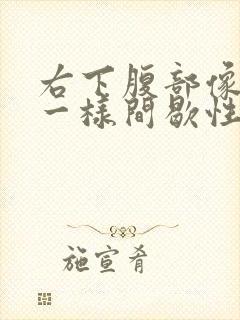 右下腹部像
一樣間歇性
施宣肴